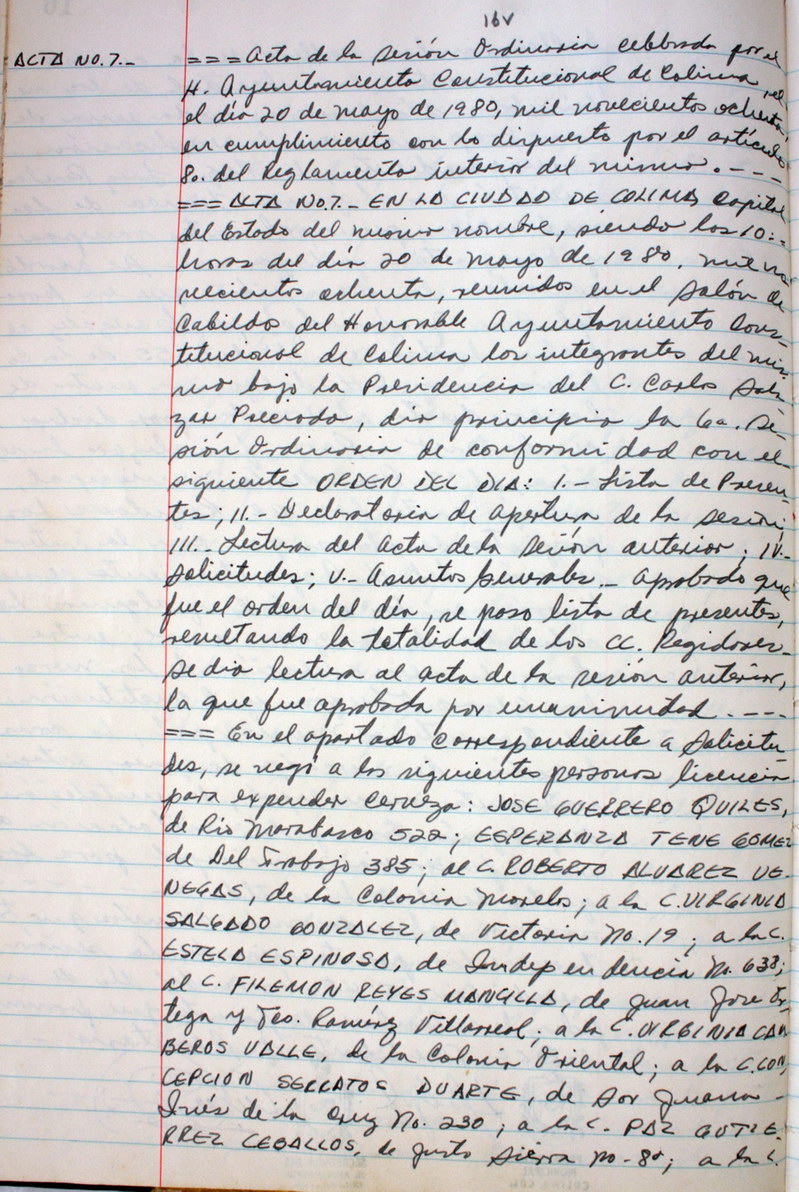 16v
ACTA NO. 7.- === Acta de la sesión Ordinaria celebrada por el
H. Ayuntamiento Constitucional de Colima, el
el día 20 de mayo de 1980, mil novecientos ochenta,
en cumplimiento con lo dispuesto por el artículo
8o. del Reglamento interior del mismo. - - -
=== ACTA NO. 7.- EN LA CIUDAD DE COLIMA, Capital
del Estado del mismo nombre, siendo las 10:=
horas del día 20 de mayo de 1980, mil no
vecientos ochenta, reunidos en el Salón de
Cabildos del Honorable Ayuntamiento Cons-
titucional de Colima los integrantes del mis-
mo bajo la Presidencia del C. Carlos Sala
zar Preciado, dio principio la 6a. Se-
sión Ordinaria de conformidad con el
siguiente ORDEN DEL DIA: I.- Lista de Presen-
tes; II.- Declaratoria de apertura de la sesión;
III.- Lectura del acta de la sesión anterior; IV.-
Solicitudes; V.- Asuntos Generales.- Aprobado que
fue el orden del día, se paso lista de presentes,
resultando la totalidad de los CC. Regidores.
Se dio lectura al acta de la sesión anterior,
la que fue aprobada por unanimidad. - - -
=== En el apartado correspondiente a Solicitu
des, se negó a las siguientes personas licencia
para expender Cerveza: JOSE GUERRERO QUILES,
de Rio Marabasco 522; ESPERANZA TENE GOMEZ
de Del Trabajo 385; al C. ROBERTO ALVAREZ VE-
NEGAS, de la Colonia Morelos; a la C. VIRGINIA
SALGADO GONZALEZ, de Victoria No. 19; a la C.
ESTELA ESPINOSA, de Independencia No. 638;
al C. FILEMON REYES MANCILLA, de Juan Jose Or
tega y Fco. Ramírez Villarreal; a la C. VIRGINIA CAM
BEROS VALLE, de la Colonia Oriental; a la C. CON
CEPCION SERRATOS DUARTE, de Sor Juana -
Inés de la Cruz No. 230; a la C. PAZ GUTIE-
RREZ CEBALLOS, de Justo Sierra No. ; a la C.